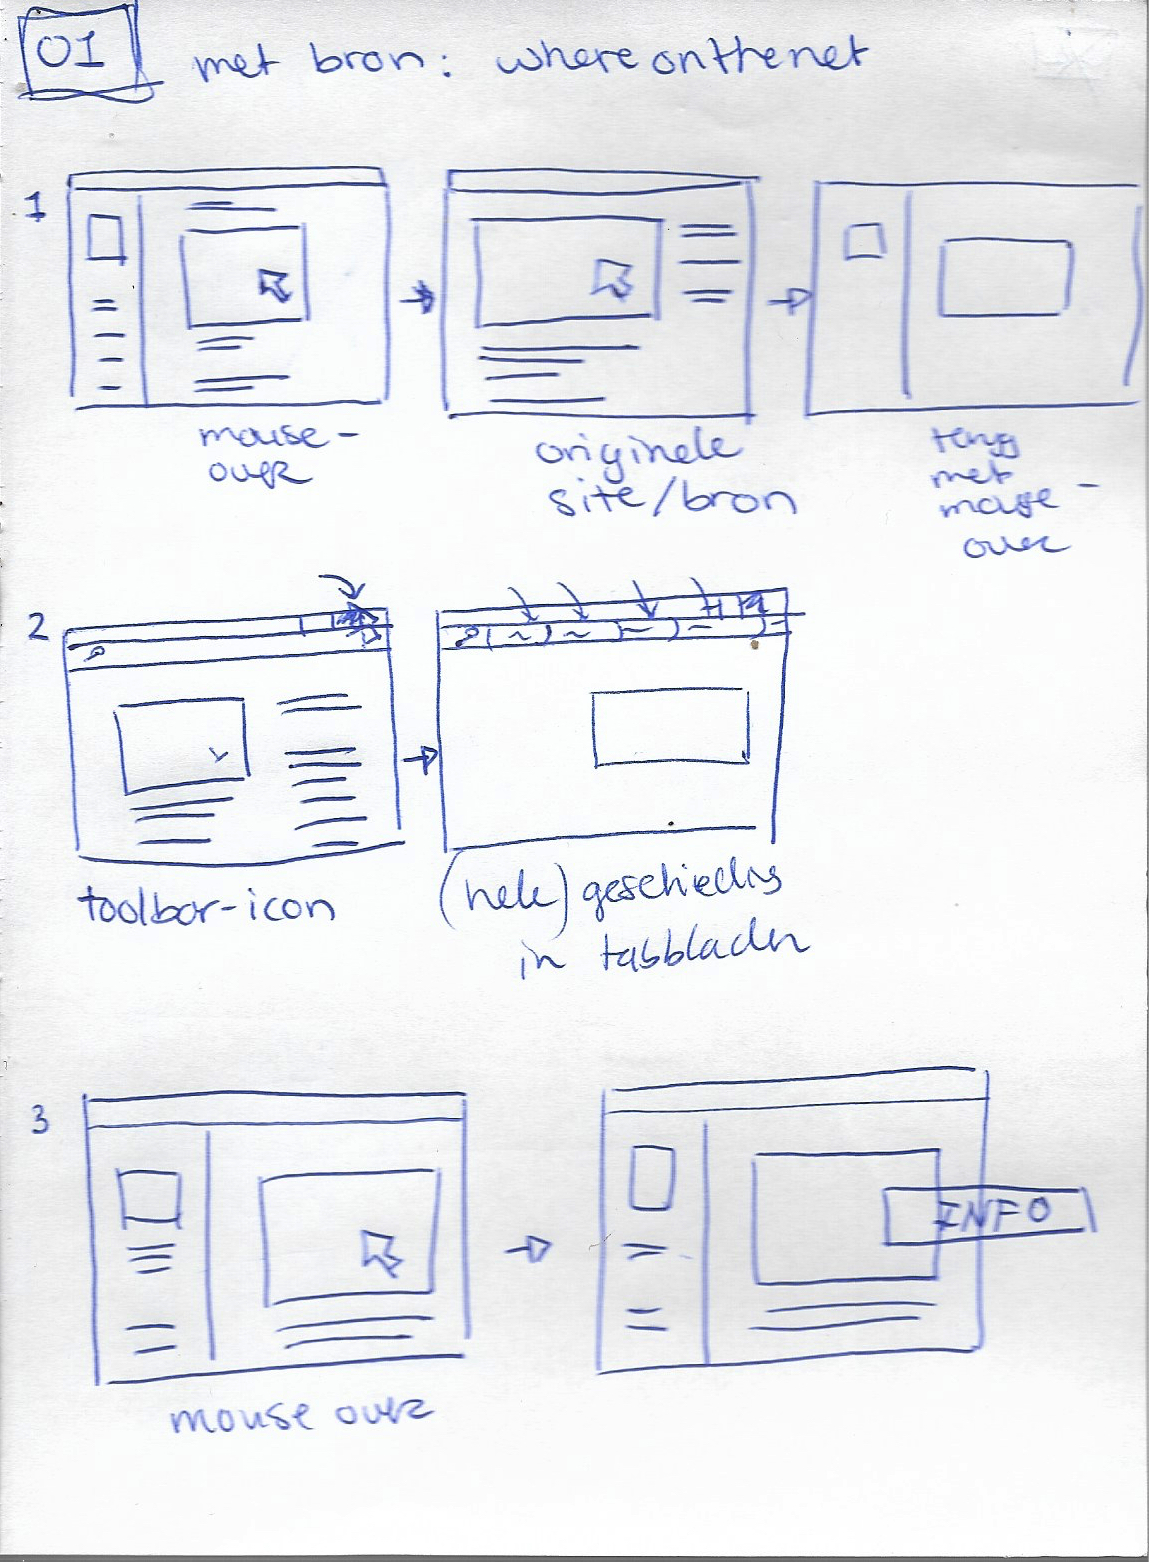 01 met bron: whereonthenet
1
mouse-
over
originele
site/bron
terug
met
mouse-
over
2
toolbar-icon
(hele) geschiedenis
in tabbladen
3
INFO
mouse over